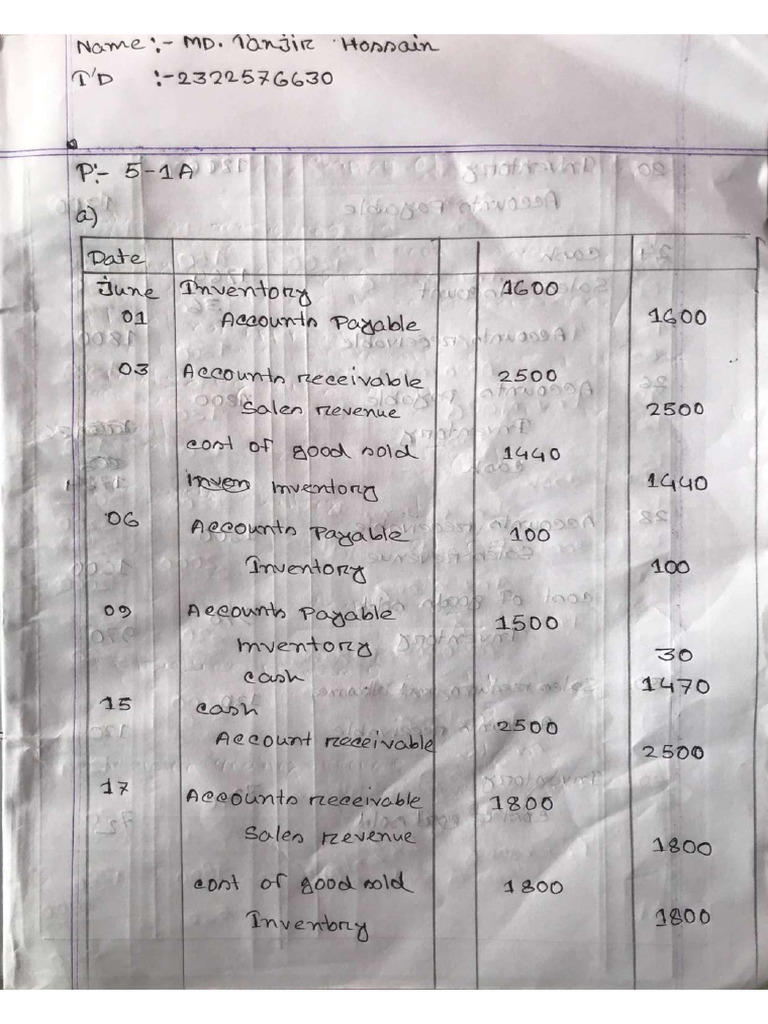 Name :- MD. Tanjir Hossain
I'D :- 2322576630
P:- 5-1A
a)
Date
June Inventory 1600
01 Accounts Payable 1600
03 Accounts receivable 2500
Sales revenue 2500
cost of good sold 1440
inven Inventory 1440
06 Accounts Payable 100
Inventory 100
09 Accounts Payable 1500
Inventory 30
cash 1470
15 cash 2500
Account receivable 2500
17 Accounts receivable 1800
Sales revenue 1800
cost of good sold 1800
Inventory 1800